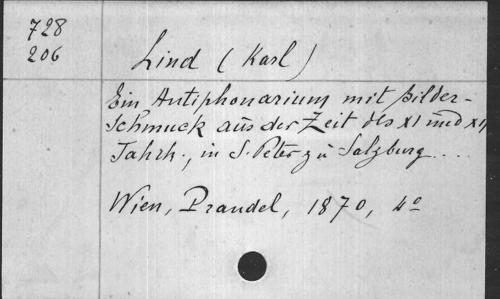 728
206
Lind (Karl)
Ein Antiphonarium mit Bilder-
schmuck aus der Zeit des XI und XII
Jahrh., in S. Peter zu Salzburg....
Wien, Prandel, 1870, 4º